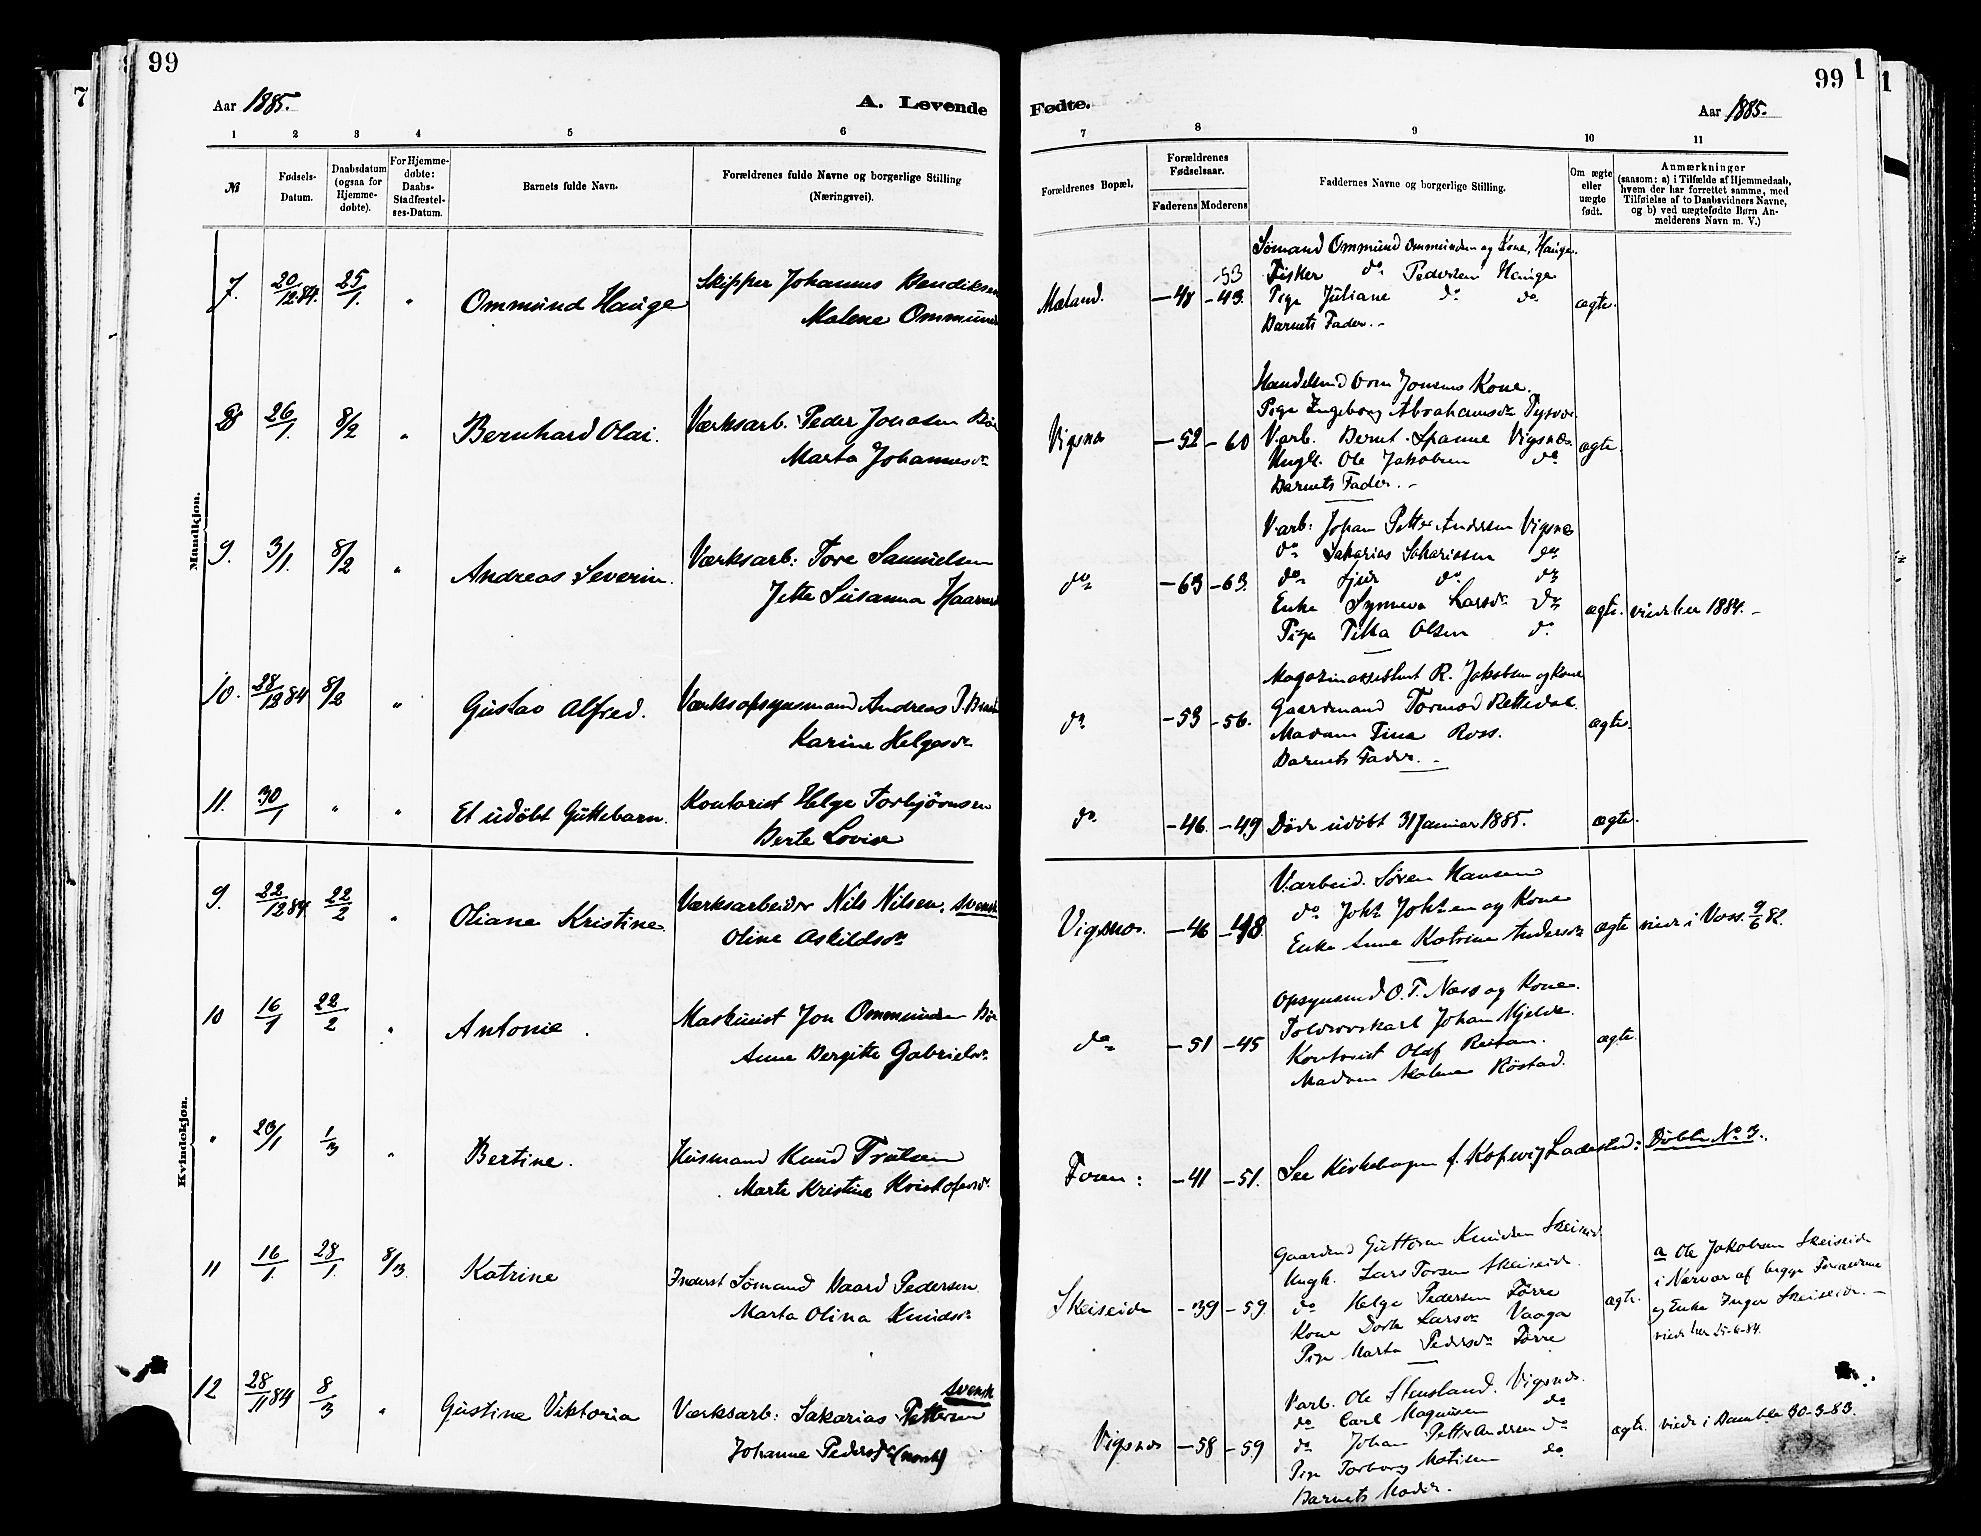 99
99
Aar 1885.
A. Levende
Fødte.
Aar 1885.
1 2 3 4 5 6 7 8 9 10 11
№
Fødsels-
Datum.
Daabsdatum
(ogsaa for
Hjemme-
døbte).
For Hjemme-
døbte:
Daabs-
Stadfæstel-
ses-Datum.
Barnets fulde Navn.
Forældrenes fulde Navne og borgerlige Stilling
(Næringsvei).
Forældrenes Bopæl.
Forældrenes
Fødselsaar.
Faderens Moderens
Faddernes Navne og borgerlige Stilling.
Om ægte
eller
uægte
født.
Anmærkninger
(saasom: a) i Tilfælde af Hjemmedaab,
hvem der har forrettet samme, med
Tilføielse af to Daabsvidners Navne,
og b) ved uægtefødte Børn An-
melderens Navn m. V.)
Mandkjøn.
7. 20/12 84. 25/1. " Ommund Hauge
Skipper Johannes Bendiksen
Malene Ommunds
Mæland. -48 -43.
-53
Sømand Ommund Ommundsen og Kone, Hauge.
Fisker do Pedersen Hauge
Pige Juliane do do
Barnets Fader.-
ægte.
8 26/1. 8/2 " Bernhard Olai.
Værksarb. Peder Jonasen
Marta Johannesdr
Vigsnæs -52 -60
Jonsens Kone.
Pige Ingeborg Abrahamsdr Tysvær
V.arb. Bernt Spanne Vigsnæs.
Ungk. Ole Jakobsen do
Barnets Fader.-
ægte.
9. 3/1. 8/2 " Andreas Severin.
Værksarb: Tore Samuelsen
Jette Susanna
do -63 -63.
V.arb: Johan Petter Andersen Vigsnæs
do Sakarias Sakariasen do
do do do
Enke Synneva Larsdr do
Pige Olsen do.
ægte. viede her 1884.-
10. 28/12 84 8/2 " Gustav Alfred.
Værksopsynsmand Andreas
Karine Helgesdr
do -53 -56.
Magazinassistent R. Jakobsen og Kone
Gaardmand Tormod Rettedal.
Madam Tina Ross.
Barnets Fader.-
ægte.
11. 30/1 " " Et udøbt Guttebarn.
Kontorist Helge Torbjørnsen
Berte Lovise
do -46. -49 Døde udøbt 31 Januar 1885. ægte.
Kvindekjøn.
9. 22/12 84 22/2 " Oliane Kristine
Værksarbeider Nils Nilsen, svensk
Oline Askildsdr
Vigsnæs. -46 -48.
V.arbeid. Søren Hansen
do Johs Johsen og Kone
Enke Anne Katrine Andersdr
ægte viede i Voss. 9/6 82.
10 16/1 22/2 " Antonie.
Maskinist Jon Ommundsen
Anne Bergitte Gabrielsdr
do -51 -45
Opsynsmd O. T. Næss og Kone.
Toldrorskarl Johan Mjelde.
Kontorist Olaf Reitan.
Madam Malene Røstad.
ægte.
" 23/1 1/3 " Bertine.
Husmand Knud Trulsen
Marte Kristine Kristofersdr
-41 -51. See Kirkebogen f. Kopervig Ladested: Døbte No 3.
11 16/1. 28/1. 8/3. Katrine
Inderst Sømand Baard Pedersen
Marta Olina Knudsdr
Skeiseide -39 -59.
Gaardmd Guttorm Knudsen Skeiseid.
Ungk. Lars Torsen Skeiseide.
do Helge Pedersen Førre
Kone Dorte Larsdr Vaaga
Pige Marta Pedersdr Førre
ægte.
a Ole Jakobsen Skeiseide
i Nærvær af begge Forældrene
og Enke Inger Skeiseide.-
viede her 25-6-84.
12 28/11 84 8/3 " Gustine Viktoria
Værksarb: Sakarias Pettersen svensk
Johanne Pedersdr (norsk)
Vigsnæs -58 -59
V.arb. Ole Stensland. Vigsnæs.
do Carl Magnusen do
do Johan Petter Andersen do
Pige Torborg Matisen do
Barnets Moder.
ægte. viede i Bamble 30-3-83.